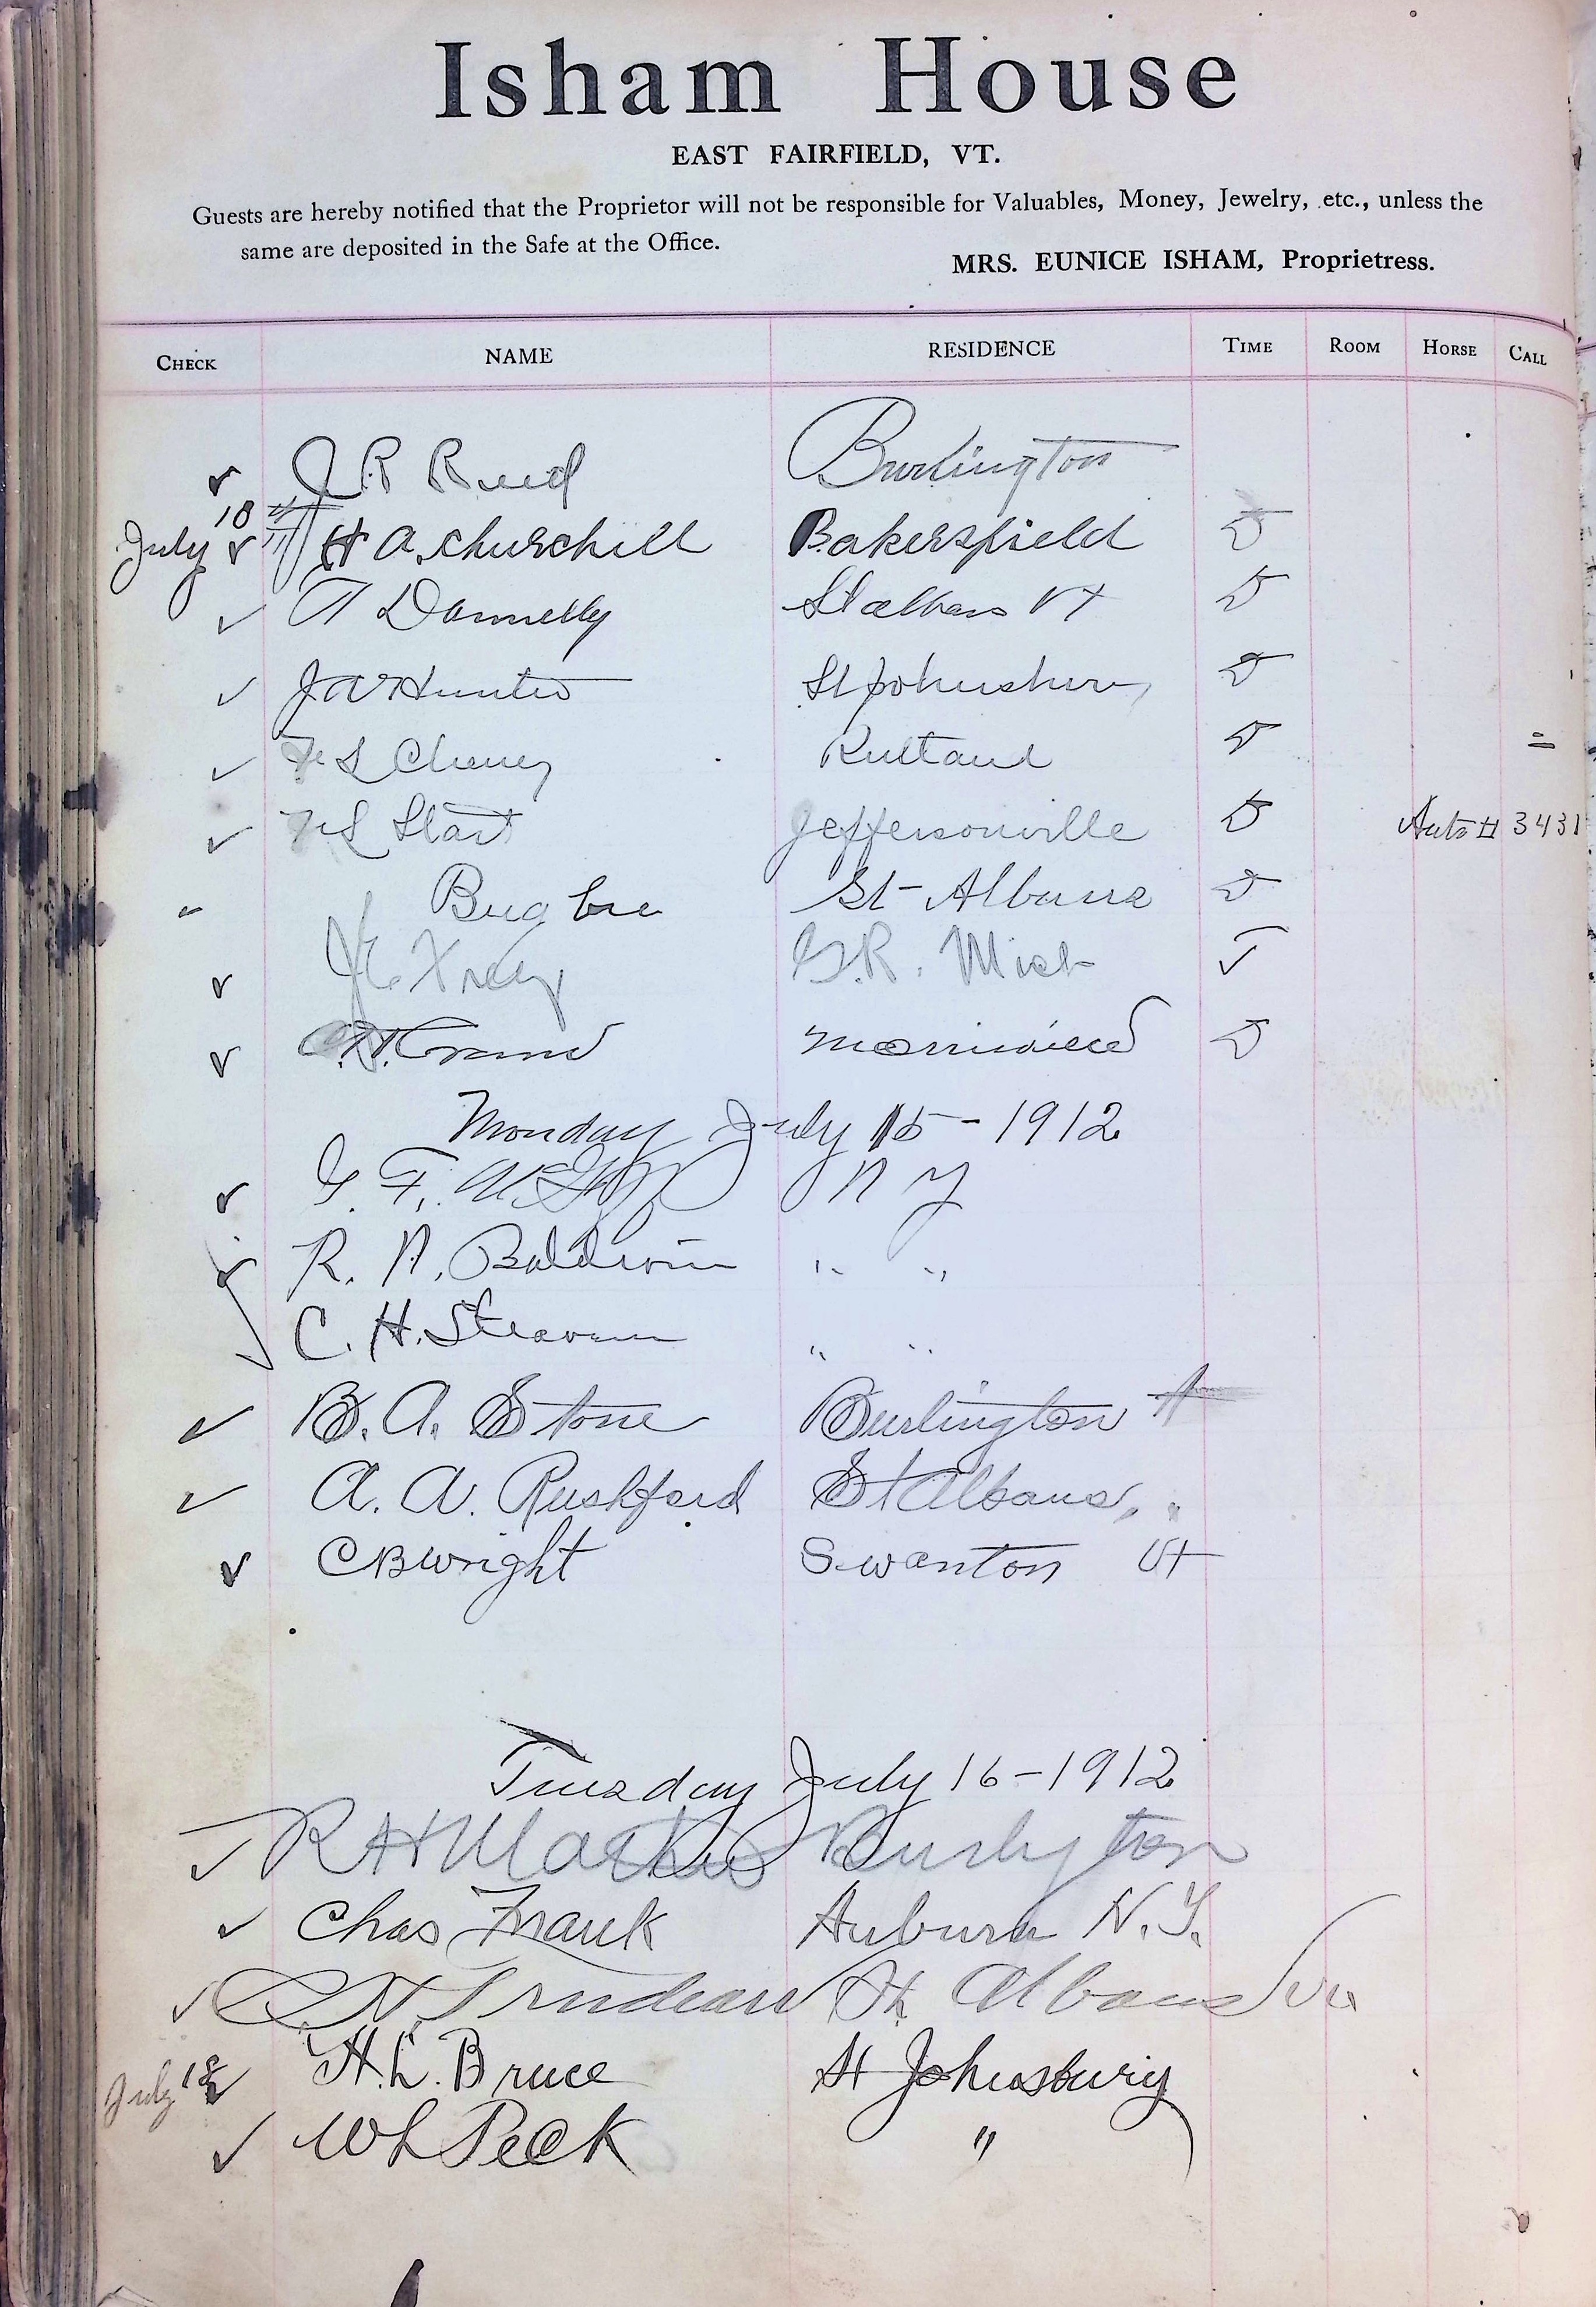 Isham House
EAST FAIRFIELD, VT.
Guests are hereby notified that the Proprietor will not be responsible for Valuables, Money, Jewelry, etc., unless the
same are deposited in the Safe at the Office.
MRS. EUNICE ISHAM, Proprietress.
CHECK NAME RESIDENCE TIME ROOM HORSE CALL
J R Reed Burlington
July 18 H A. Churchill Bakersfield D
Donnelly St albans Vt D
J W Hunter St Johnsbury D
S Cheney Rutland D
Start Jeffersonville D Auto # 3431
Bugbee St-Albans D
G.R. Mich
Morrisville D
Monday July 15-1912
G. F. N Y
R. N. Baldwin " "
C. H. Stearns " "
B. A. Stone Burlington
A. A. Rushford St Albans, "
C B Wright Swanton Vt
Tuesday July 16-1912
R H Burlington
Chas Frank Auburn N.Y.
N Trudeau St. Albans
July 18 H. L. Bruce St Johnsbury
W L Peck "